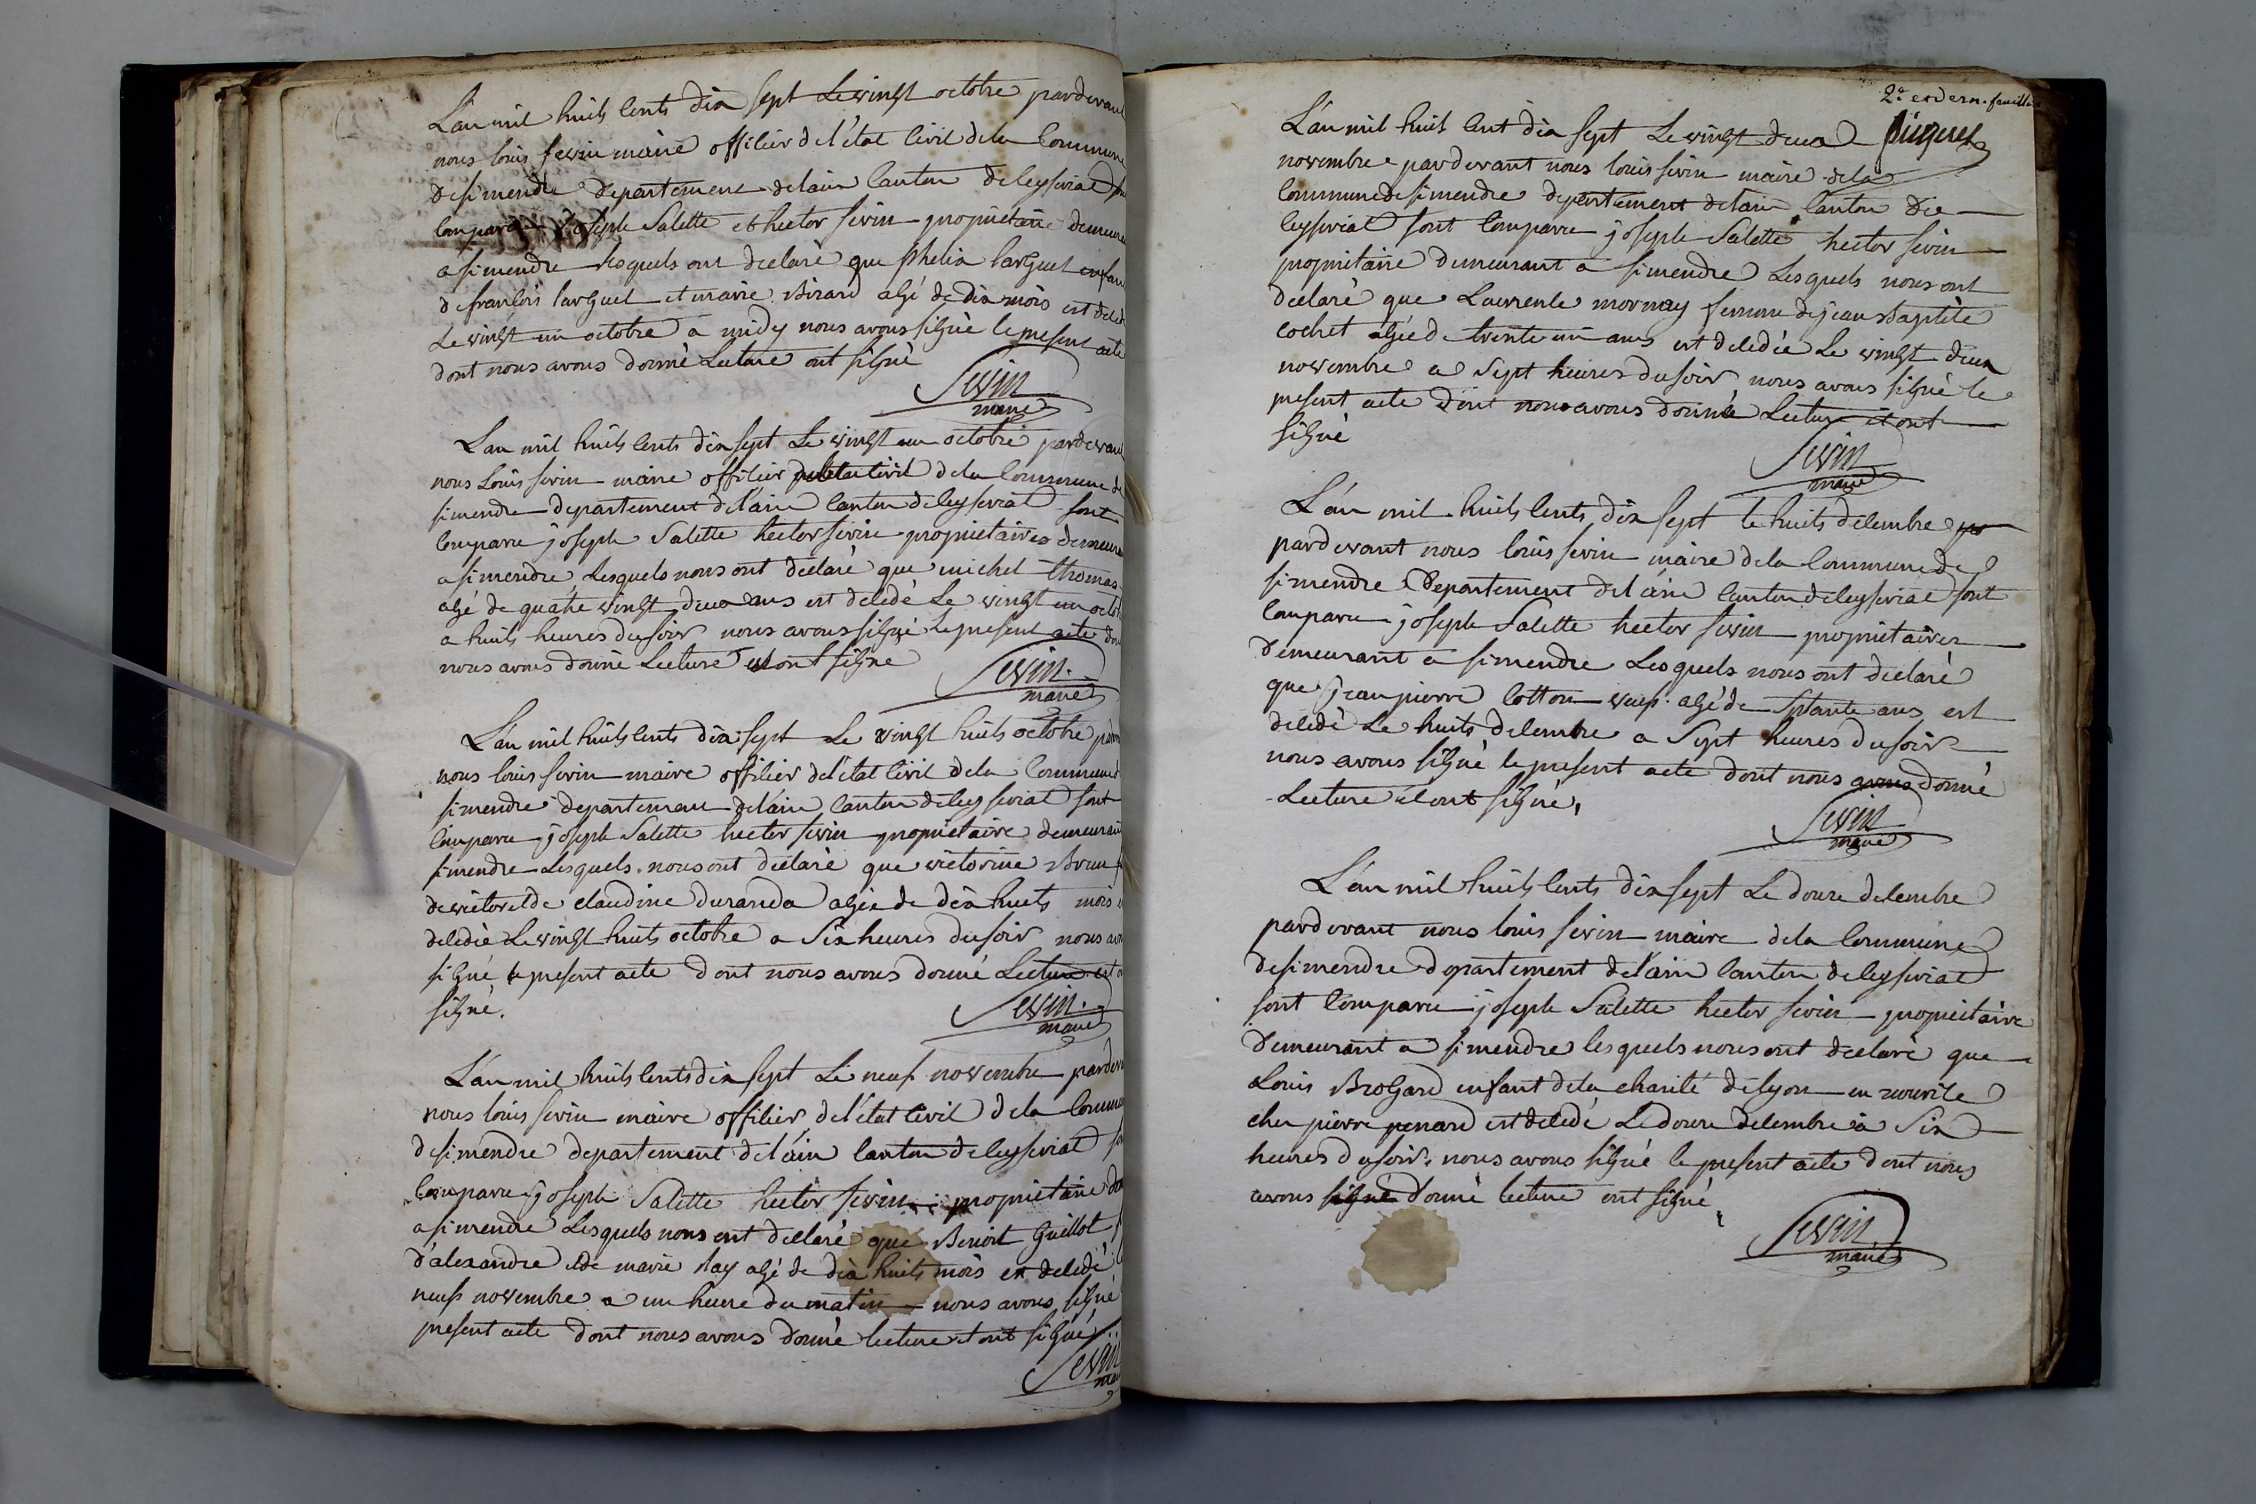 L'an mil huits cents dix sept Le vingt octobre pardevant
nous louis sevin maire officier de l'état civil de la Commune
de simendre departement de lain Canton de leyseriat
comparu joseph Salette et hector sevin propriétaire demeura
a simendre lesquels ont declaré que phelix larguet enfan
de francois larguet et marie Birard agé de dix mois est déléd
Le vingt un octobre a midy nous avons signé le present acte
dont nous avons donné Lecture ont signé
Sevin
maire
L'an mil huits cents dix sept Le vingt un octobre pardevan
nous Louis sevin maire officier de letat civil de la Commune de
simendre departement de l'ain Canton de leyseriat sont
Comparu joseph Salette hector sevin proprietaires demeura
a simendre Lesquels nous ont declaré que michel thomas
agé de quatre vingt deux ans est délédé Le vingt un octob
a huits heures du soir nous avons signé Le present acte don
nous avons donné Lecture et ont signé
Sevin
maire
L'an mil huits cents dix sept Le vingt huits octobre
nous louis sevin maire officier de l'état Civil de la Commune
simendre departeman de l'ain Canton de leyseriat sont
Comparu joseph Salette hector sevin proprietaire demeurant
simendre Lesquels nous ont déclaré que victorine Brun
de victor et de claudine duranda agée de dix huits mois
délédée Le vingt huits octobre a Six heures du soir nous avo
signé le present acte dont nous avons donné Lecture et o
signé.
Sevin
maire
L'an mil huits cents dix sept Le neuf novembre pardev
nous louis sevin maire officier de l'état civil de la Commu
de simendre departement de l'ain Canton de leyseriat
Comparu joseph Salette hector sevin proprietaire
a simendre Lesquels nous ont declaré que Benoit Guillot
d'alexandre et de marie day agé de dix huits mois est delédé
neuf novembre a un heure du matin nous avons signé
present acte dont nous avons donné lecture et ont signé
Sevin
2e et dern. feuille
L'an mil huit cent dix sept Le vingt deux
novembre pardevant nous louis sevin maire de la
Commune de simendre departement de lain Canton de
leyseriat sont Comparu joseph Salette hector sevin
proprietaire demeurant a simendre Lesquels nous ont
déclaré que Laurence mornay femme de jean Baptiste
cochet agée de trente un ans est delédée Le vingt deux
novembre a Sept heures du soir nous avons signé le
present acte dont nous avons donné Lecture et ont
signé
Sevin
maire
L'an mil huits cents dix sept le huits delembre
pardevant nous louis sevin maire de la Commune de
simendre Departement de l'ain Canton de leyseriat sont
Comparu joseph Salette hector sevin proprietaires
Demeurant a simendre Lesquels nous ont declaré
que jean pierre Cotton veuf agé de Sptante ans est
délédé Le huits delembre a Sept heures du soir
nous avons signé le present acte dont nous avons donné
Lecture et ont signé,
Sevin
maire
L'an mil huits cents dix sept Le douze delembre
pardevant nous louis sevin maire de la Commune
de simendre departement de l'ain Canton de leyseriat
sont Comparu joseph Salette hector sevin proprietaire
Demeurant a simendre lesquels nous ont declaré que
Louis Brogard enfant de la charité de lyon en nourice
cher pierre penard est délédé Le douze delembre a Six
heures du soir. nous avons signé le present acte dont nous
avons signé donné lecture ont signé
Sevin
maire